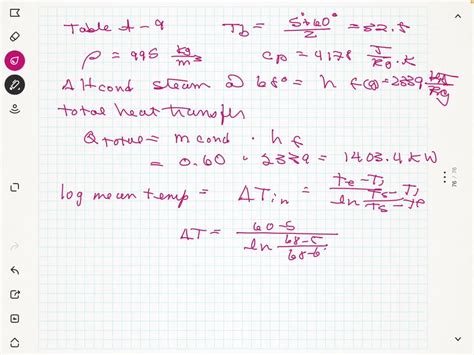 Table A-9 Tb = 5°+60°/2 = 32.5
ρ = 995 kg/m³ cp = 4178 J/kg·K
ΔHcond steam @ 68° = h f@ = 2339 KJ/kg
total heat transfer
Q total = m cond · h f
= 0.60 · 2339 = 1403.4 KW
log mean temp = ΔTin = te-Ti / ln Ts-Ti / Ts-Te
ΔT = 60-5 / ln 68-5 / 68-6
76 / 76